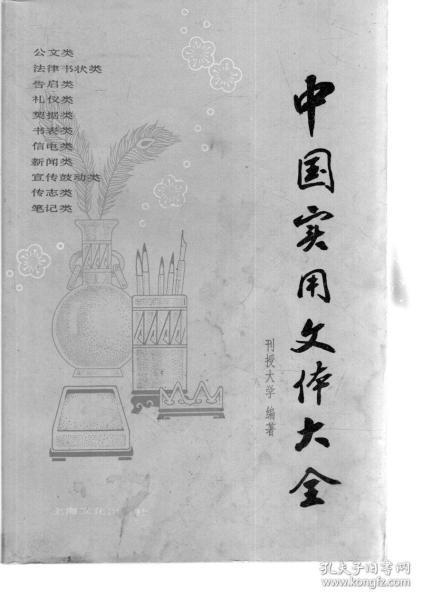 公文类
法律书状类
告启类
札仪类
契据类
书表类
信电类
新闻类
宣传鼓动类
传志类
笔记类
中国实用文体大全
刊授大学 编著
上海文化出版社
孔夫子旧书网
www.kongfz.com